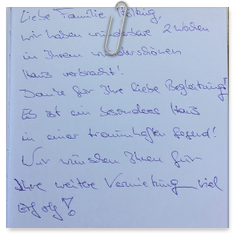 Liebe Familie
wir haben wunderbare 2 Wochen
in Ihrem wunderschönen
Haus verbracht!
Danke für Ihre liebe Begleitung!
Es ist ein besonderes Haus
in einer traumhaften Gegend!
Wir wünschen Ihnen für
Ihre weitere Vermietung viel
Erfolg!